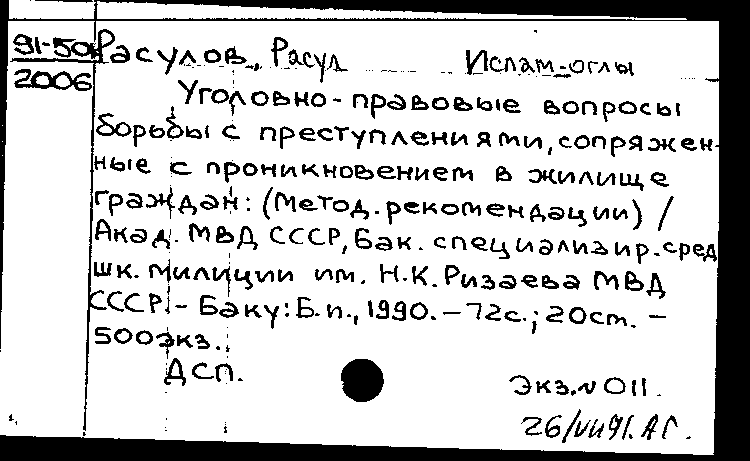 91-50
2006
Расулов, Расул Ислам-оглы
Уголовно-правовые вопросы
борьбы с преступлениями, сопряжен-
ные с проникновением в жилище
граждан: (Метод. рекомендации) /
Акад. МВД СССР, Бак. специализир. сред.
шк. милиции им. Н.К. Ризаева МВД
СССР. - Баку: Б.п., 1990. - 72с.; 20см. -
500экз..
ДСП.
Экз.N 011.
26/VII 91. АГ.